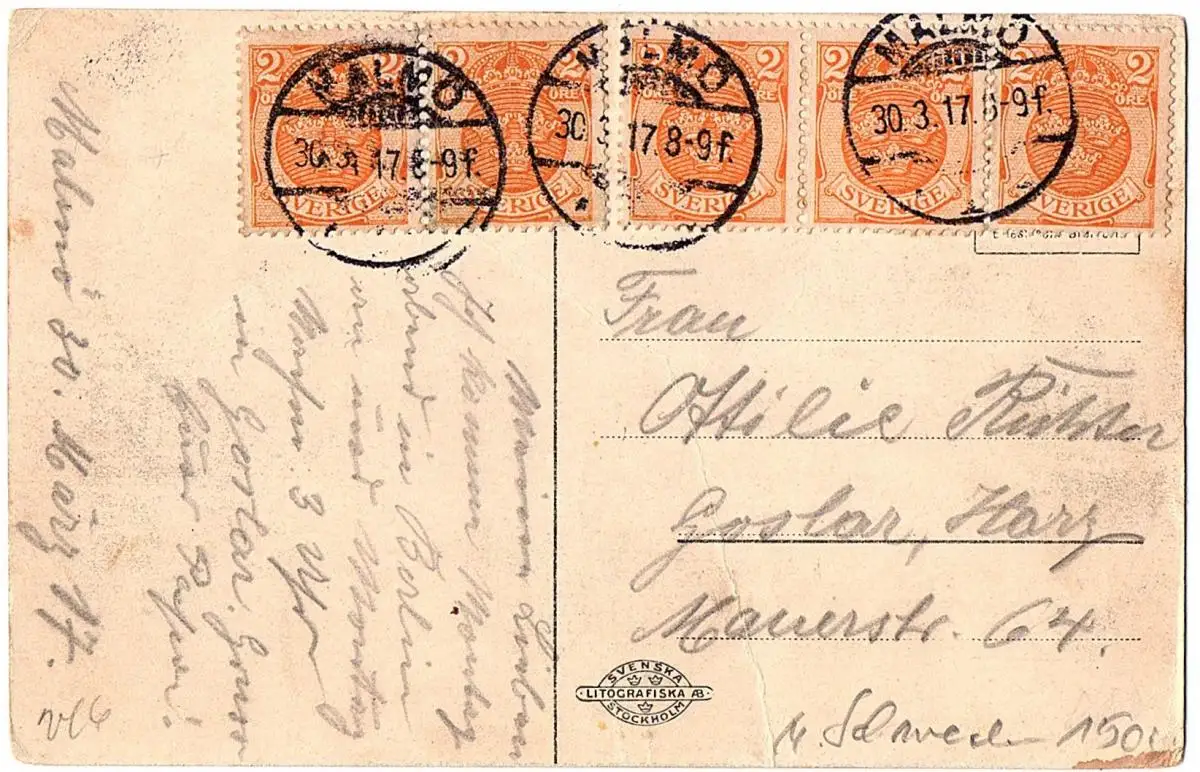 2 2 2 2 2
ÖRE ÖRE ÖRE ÖRE ÖRE
SVERIGE SVERIGE SVERIGE SVERIGE SVERIGE
MALMÖ
30.3.17.8-9f.
MALMÖ
30.3.17.8-9f.
MALMÖ
30.3.17.8-9f.
Malmö 30. März 17.
Meinen Lieben
Ich komme Montag
Abend in Berlin
an und Montag
3 Uhr
in Goslar. Gruss
Euer
Frau
Ottilie
Goslar, Harz
Mauerstr. 64.
SVENSKA
LITOGRAFISKA AB
STOCKHOLM
Schweden 150